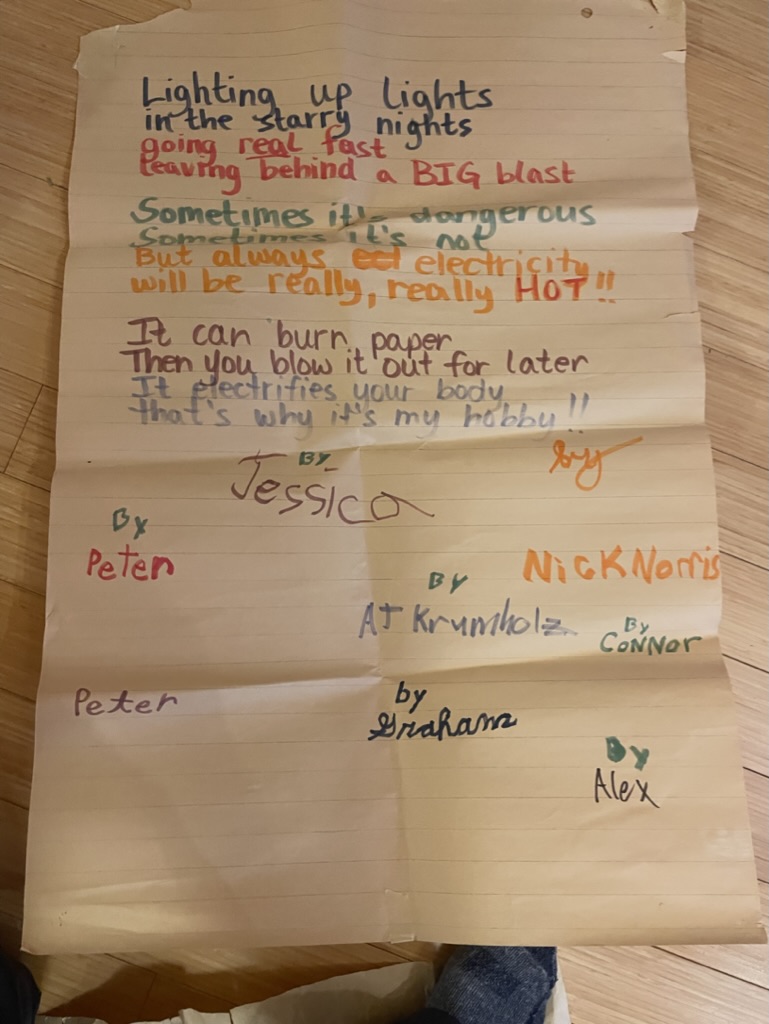 Lighting up lights
in the starry nights
going real fast
leaving behind a BIG blast
Sometimes it's dangerous
Sometimes it's not
But always electricity
will be really, really HOT!!
It can burn paper
Then you blow it out for later
It electrifies your body
that's why it's my hobby!!
By
Jessica
by
Nick Norris
By
Peter
By
AJ Krumholz
By
CONNOR
Peter
by
Graham
By
Alex